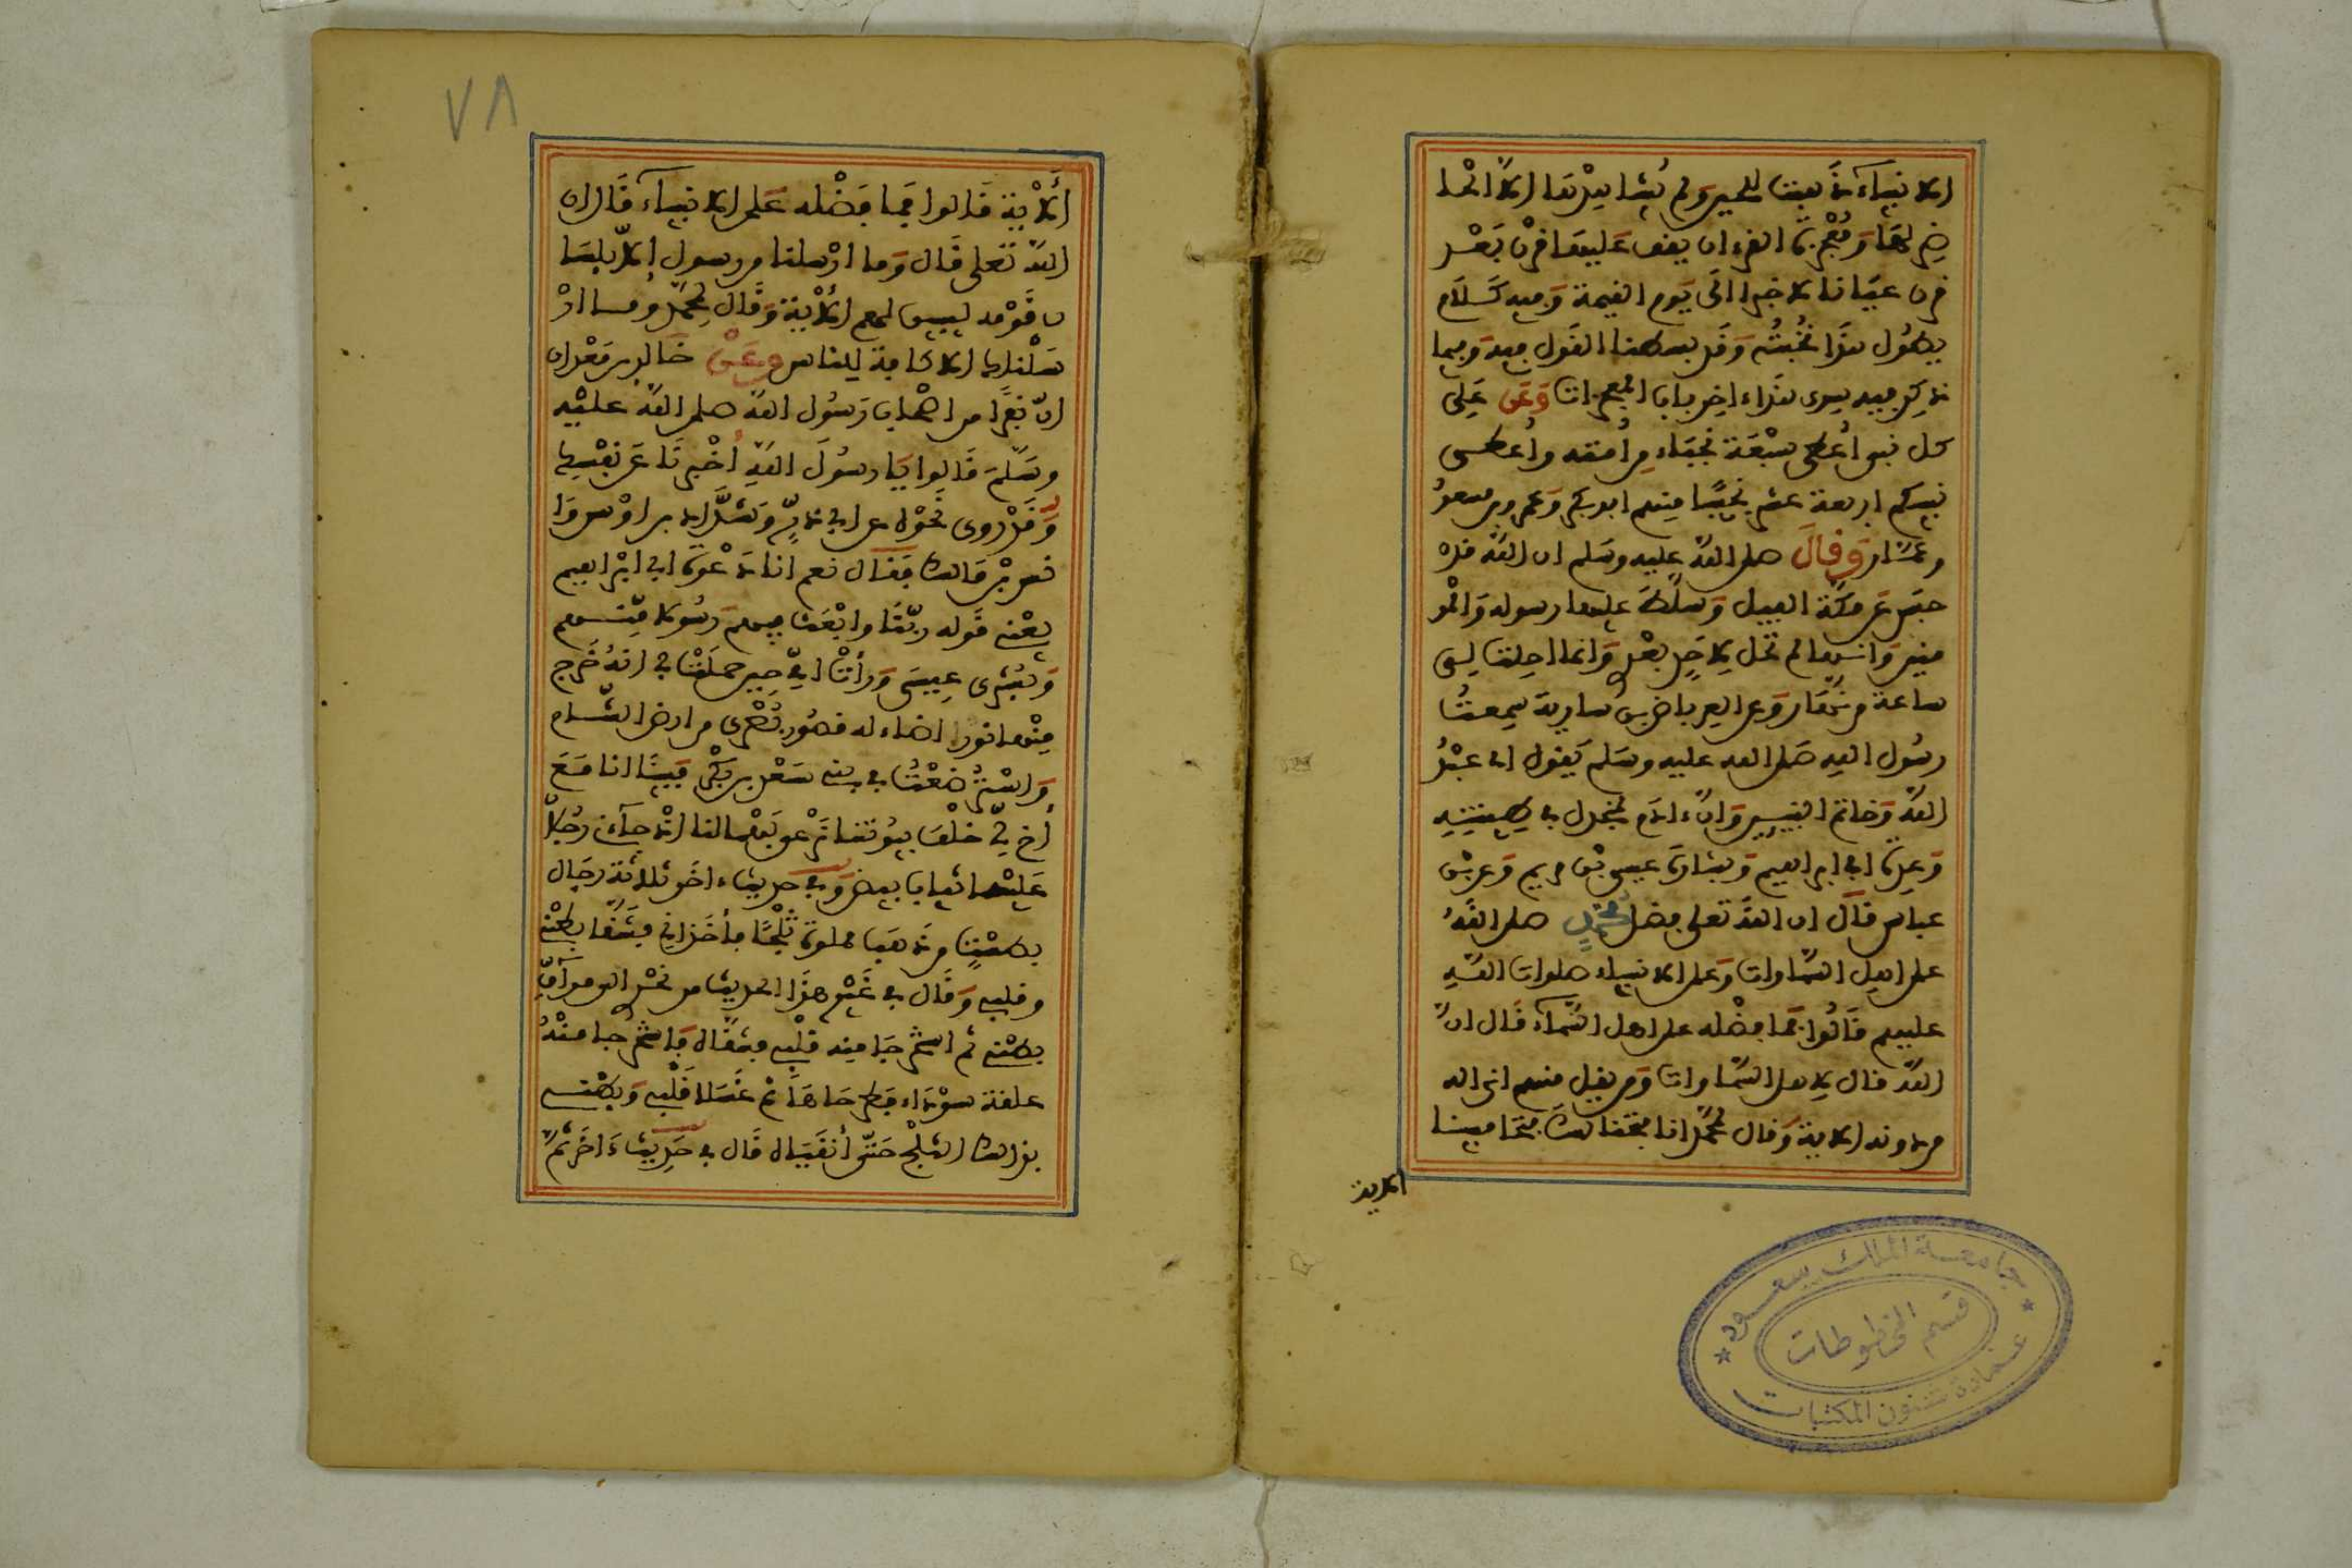 الانبياء ذهبت للحين ولم يشاهدها الا الحا
ضر لها ومعجزة القرءان يقف عليها قرن بعد
قرن عيانا لا خبرا الى يوم القيمة وفيه كلام
يطول هذا نخبته وقد بسطنا القول فيه وفيما
ذكر فيه سوى هذا ءاخر باب المعجزات وعن علي
كل نبي أعطي سبعة نجباء من أمته وأعطي
نبيكم اربعة عشر نجيبا منهم ابو بكر وعمر وبن مسعود
وعمار وقال صلى الله عليه وسلم ان الله قد
حبس عن مكة الفيل وسلط عليها رسوله والمو
منين وانها لم تحل لاحد بعدي وانما احلت لي
ساعة من نهار وعن العرباض بن سارية سمعت
رسول الله صلى الله عليه وسلم يقول اني عبد
الله وخاتم النبيين وان ءادم لمنجدل في طينته
وعدة ابي ابراهيم وبشارة عيسى بن مريم وعن بن
عباس قال ان الله تعلى فضل محمد صلى الله
على اهل السماوات وعلى الانبياء صلوات الله
عليهم قالوا فما فضله على اهل السماء قال ان
الله قال لاهل السماوات ومن يقل منهم اني اله
من دونه الاية وقال لمحمد انا فتحنا لك فتحا مبينا
الاية
٧٨
ألاية قالوا فما فضله على الانبياء قال ان
الله تعلى قال وما ارسلنا من رسول إلا بلسا
ن قومه ليبين لهم ألاية وقال لمحمد وما ار
سلناك الا كافة للناس وعن خالد بن معدان
ان نفرا من اصحاب رسول الله صلى الله عليه
وسلم قالوا يا رسول الله أخبرنا عن نفسك
وقد روى نحوه عن ابي ذر وشداد بن اوس وا
نس بن مالك فقال نعم انا دعوة ابي ابراهيم
يعني قوله ربنا وابعث فيهم رسولا منهم
وبشرى عيسى ورأت امي حين حملت بي انه خرج
منها نور اضاء له قصور بصرى من ارض الشام
واسترضعت في بني سعد بن بكر فبينا انا مع
أخ لي خلف بيوتنا نرعى بهما لنا اذ جاءني رجلان
عليهما ثياب بيض وفي حديث ءاخر ثلاثة رجال
بطست من ذهب مملوة ثلجا فأخذاني فشقا بطني
وقال في غير هذا الحديث من نحري الى مراق
بطني ثم استخرجا منه قلبي فشقاه فاستخرجا منه
علقة سوداء فطرحاها ثم غسلا قلبي وبطني
بذلك الثلج حتى أنقياه قال في حديث ءاخر ثم
جامعة الملك سعود
قسم المخطوطات
عمادة شئون المكتبات